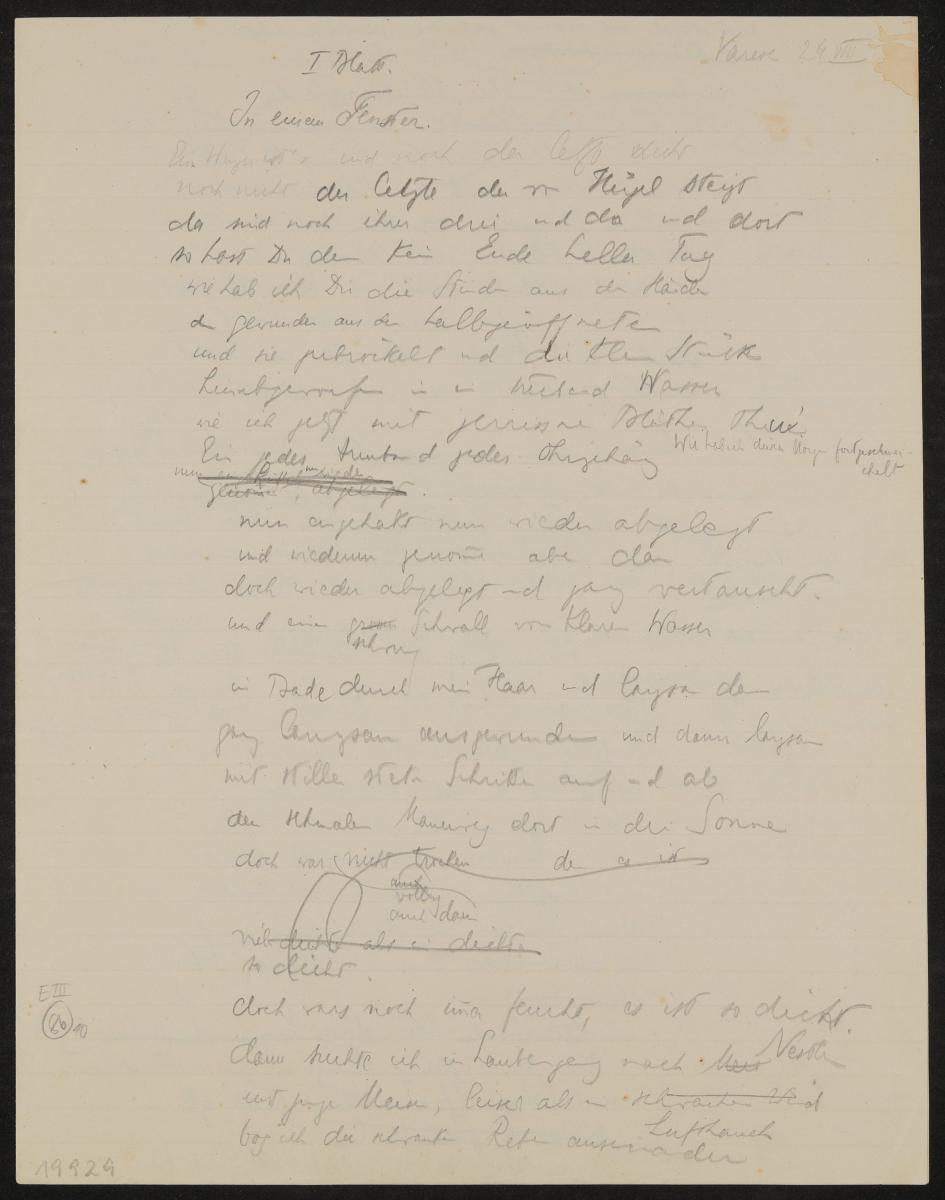 Varese 24 VIII
I Blatt.
In einem Fenster.
Ein Huger ist's und noch der letzte nicht
noch nicht der letzte der vom Hügel steigt
da sind noch ihrer drei und da und dort
so hast Du denn kein Ende heller Tag
wie hab ich Dir die Stunden aus den Händen
den gewunden aus den halbgeöffneten
und sie zerbröckelt und die kleinen Stücke
hinabgeworfen in ein treibend Wasser
wie ich jetzt mit zerrissnen Blüthen thu.
Wie hab ich deinen Morgen fortgeschmei-
chelt
Ein jedes Armband jedes Ohrgehäng
nun ein
genommen, abgelegt.
nun angehakt nun wieder abgelegt
und wiederum genommen aber dann
doch wieder abgelegt und ganz vertauscht.
und einen Schwall von klarem Wasser
im Bade durch mein Haar und langsam dann
ganz langsam ausgewunden und dann langsam
mit stillen steten Schritten auf und ab
den schmalen Mauerweg dort in der Sonne
doch wars nicht trocken denn es ist
auch
völlig
auch dann
so dicht.
doch wars noch immer feucht, es ist so dicht.
dann suchte ich im Laubengang nach Nestern
mit jungen Meisen, leiser als ein schwacher Wind
Lufthauch
bog ich die schwanken Reben auseinander
E III
86 10
19929